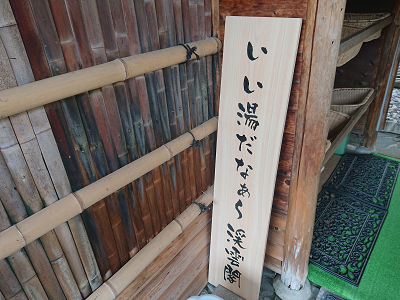 いい湯だなぁ〜渓雲閣